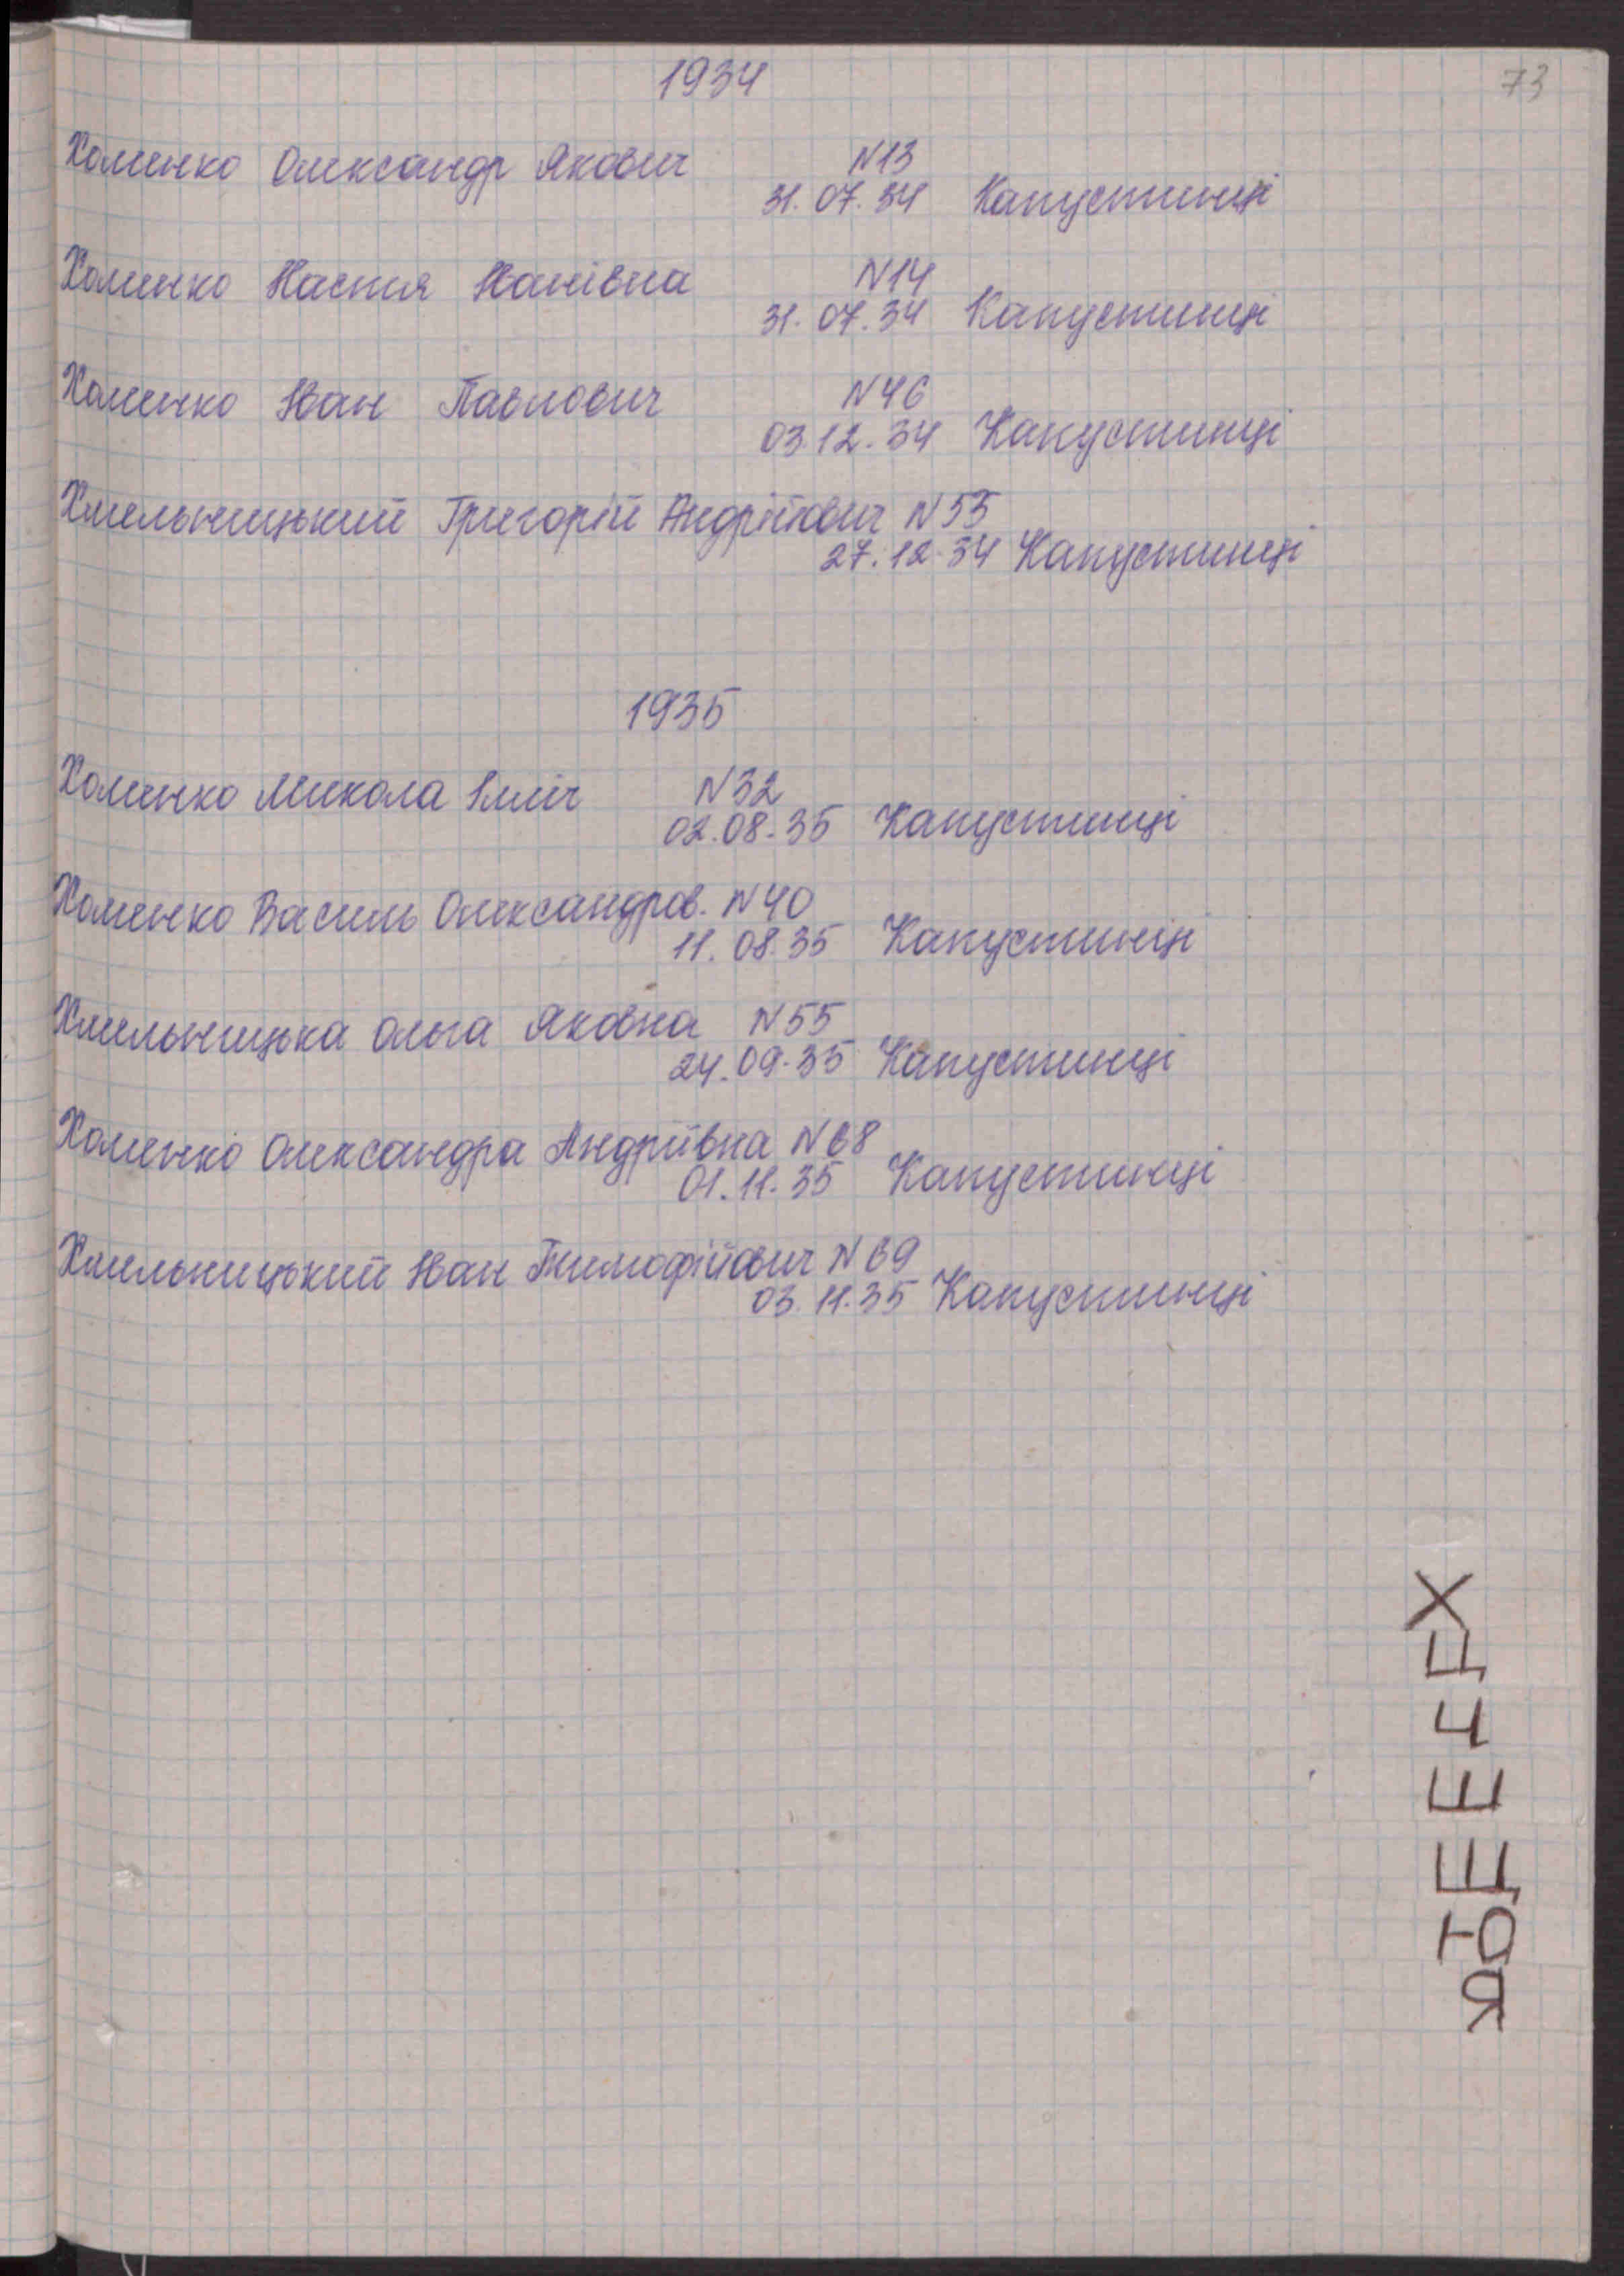 73
1934
Хоменко Олександр Якович N13
31.07.34 Капустинці
Хоменко Настя Іванівна N14
31.07.34 Капустинці
Хоменко Іван Павлович N46
03.12.34 Капустинці
Хмельницький Григорій Андрійович N53
27.12.34 Капустинці
1935
Хоменко Микола Ілліч N32
02.08.35 Капустинці
Хоменко Василь Олександров. N40
11.08.35 Капустинці
Хмельницька Ольга Яковна N55
24.09.35 Капустинці
Хоменко Олександра Андріївна N68
01.11.35 Капустинці
Хмельницький Іван Тимофійович N69
03.11.35 Капустинці
Х
Ц
Ч
Ш
Щ
Ю
Я